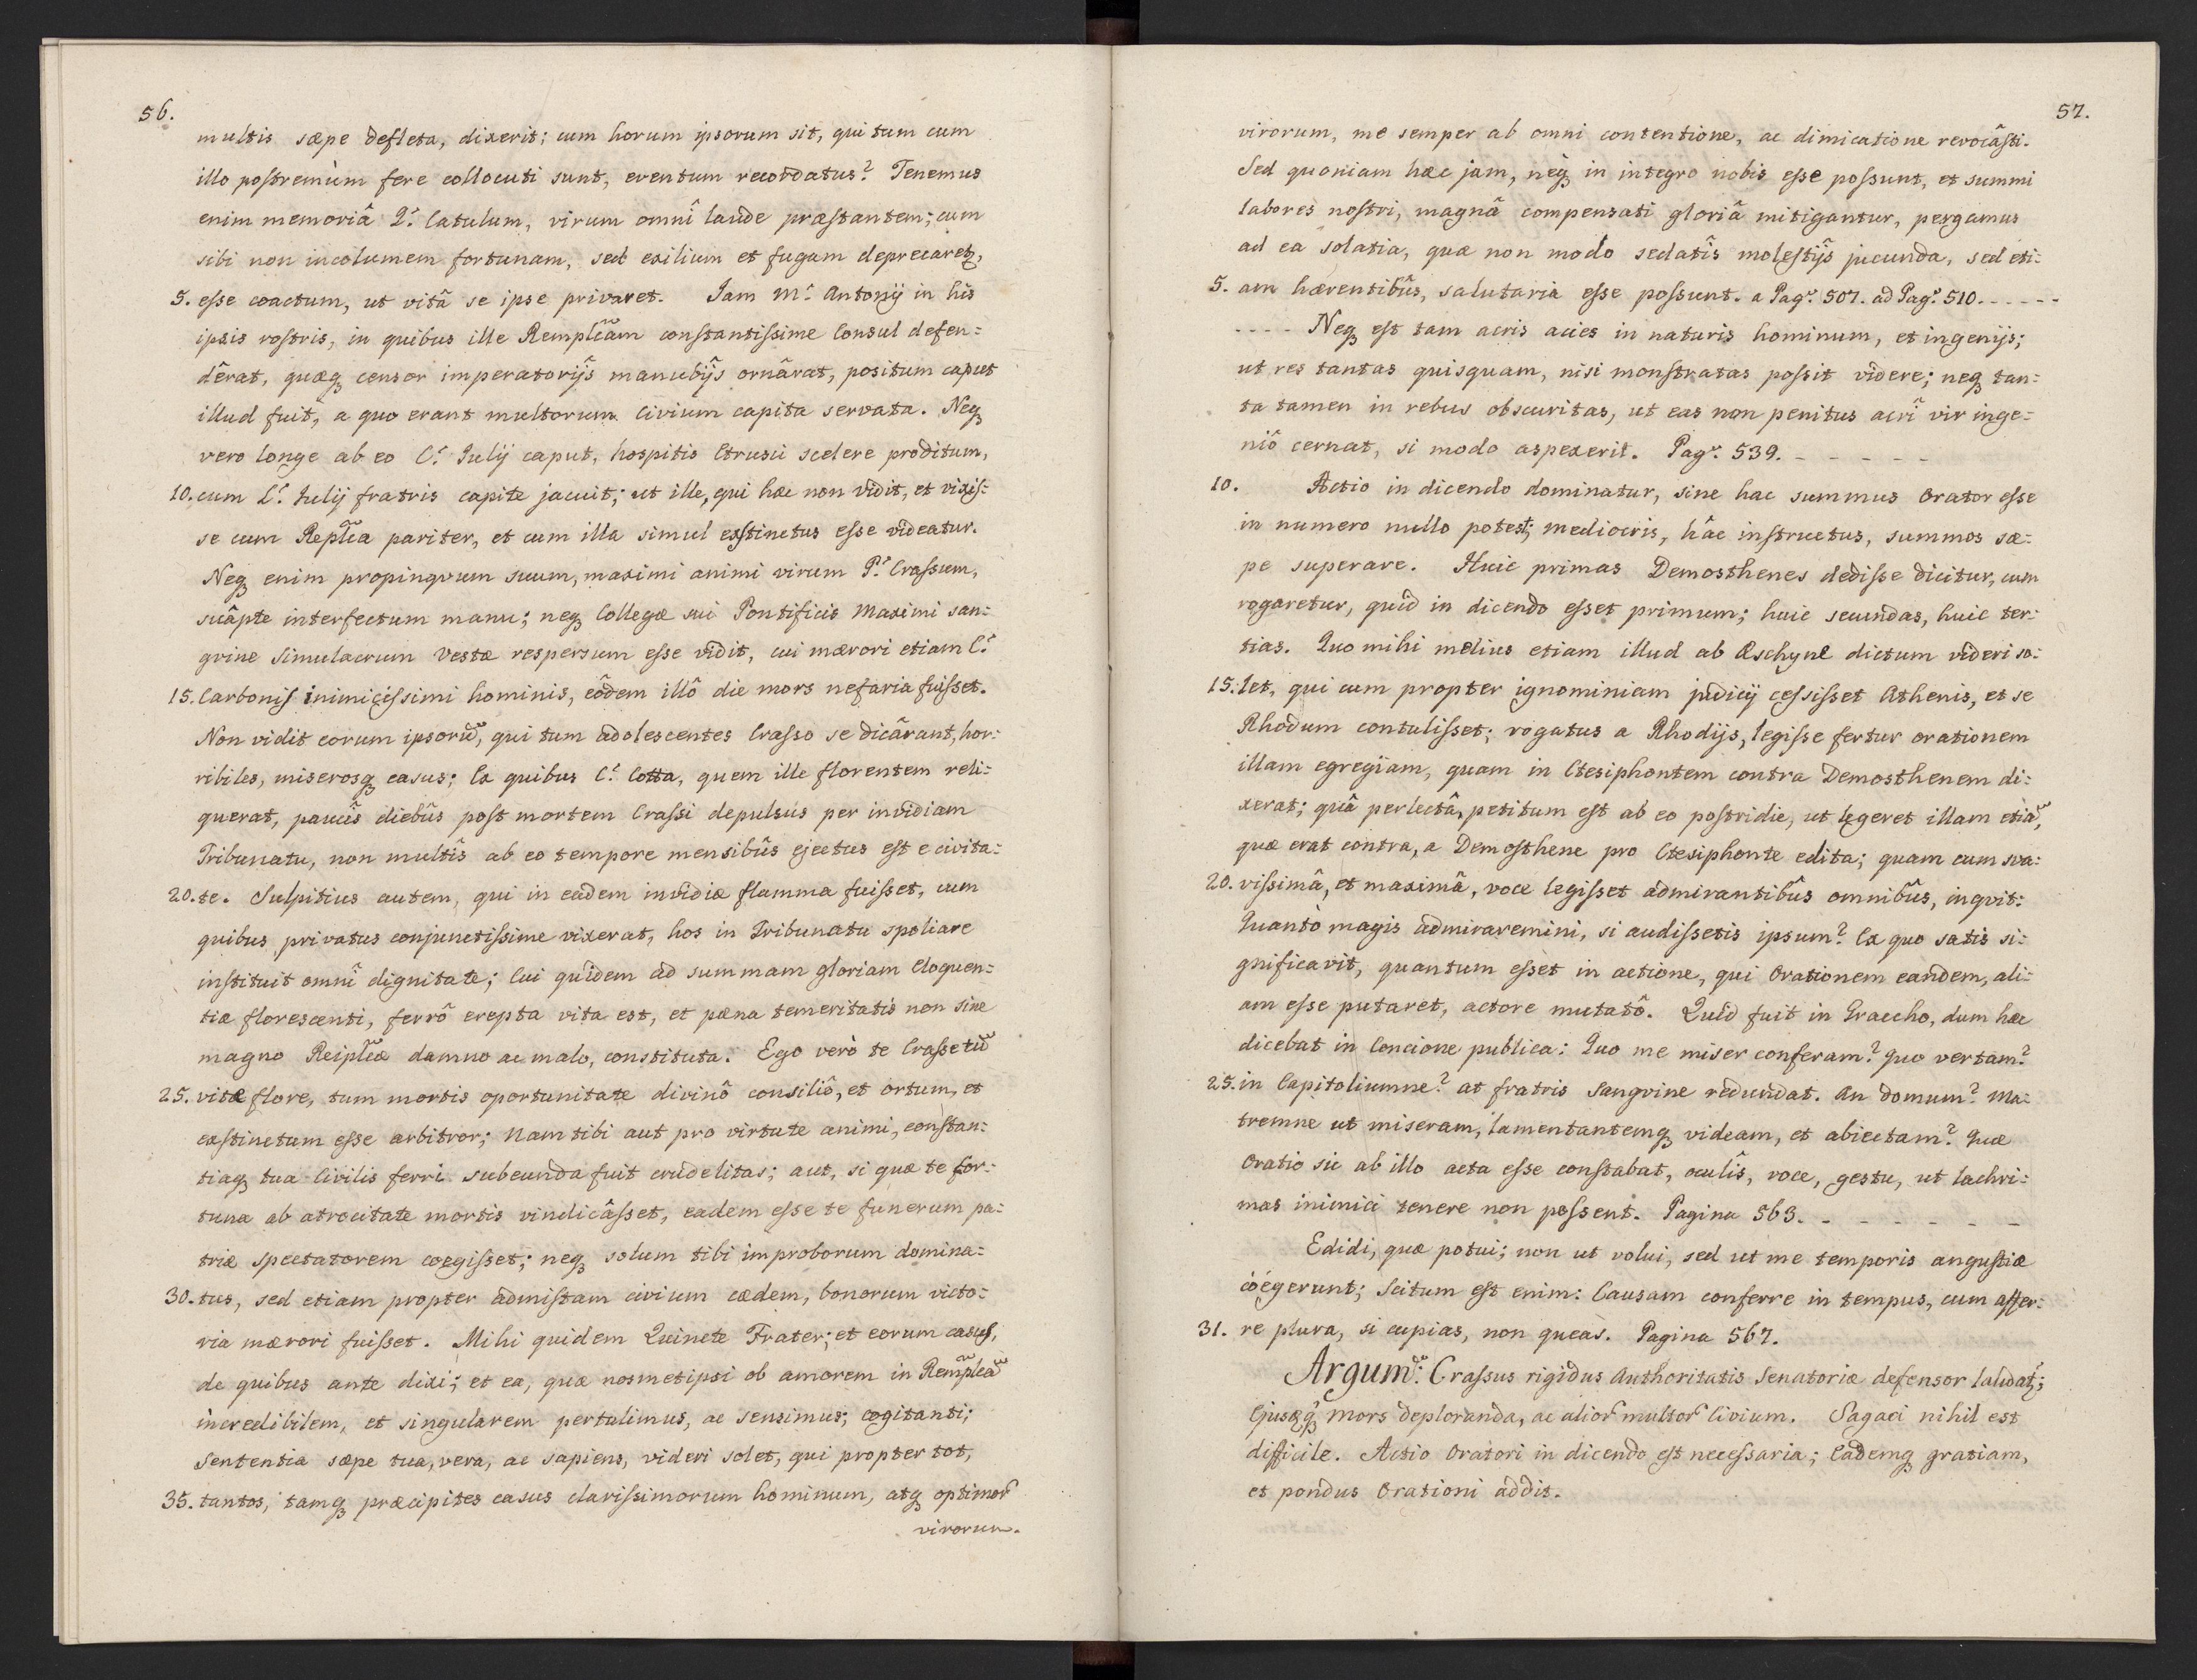 56.
multis sæpe defleta, dixerit; cum horum ipsorum sit, qui tum cum
illo postremùm fere collocuti sunt, eventum recordatus? Tenemus
enim memoriâ Q: Catulum, virum omnî laude præstantem; cum
sibi non incolumem fortunam, sed exilium et fugam deprecaretꝫ,
5. esse coactum, ut vitâ se ipse privaret. Jam M: Antonÿ in his
ipsis rostris, in quibus ille Remplcãm constantissime Consul defen=
dêrat, quæqꝫ censor imperatorÿs manubÿs ornârat, positum caput
illud fuit, a quo erant multorum Civium capita servata. Neqꝫ
vero longe ab eo C: Julÿ caput, hospitis Etrusci scelere proditum,
10. cum L: Julÿ fratris capite jacuit; ut ille, qui hæc non vidit, et vixis=
se cum Replcã pariter, et cum illa simul exstinctus esse videatur.
Neqꝫ enim propinqvum suum, maximi animi virum P: Crassum,
suâpte interfectum manu; neqꝫ Collegæ sui Pontificis Maximi san=
gvine Simulacrum Vestæ respersum esse vidit, cui mærori etiam C:
15. Carbonis inimicissimi hominis, eôdem illô die mors nefaria fuisset.
Non vidit eorum ipsorũ, qui tum adolescentes Crasso se dicârant, hor=
ribiles, miserosqꝫ casus; Ex quibus C: Cotta, quem ille florentem reli=
querat, paucîs diebûs post mortem Crassi depulsus per invidiam
Tribunatu, non multîs ab eo tempore mensibûs ejectus est e civita=
20. te. Sulpitius autem, qui in eadem invidiæ flamma fuisset, cum
quibus privatus conjunctissime vixerat, hos in Tribunatu spoliare
instituit omnî dignitate; Cui quidem ad summam gloriam Eloquen=
tiæ florescenti, ferrô erepta vita est, et pæna temeritatis non sine
magno Reiplcæ damno ac malo, constituta. Ego verò te Crasse tũ
25. vitæ flore, tum mortis oportunitate divinô consiliô, et ortum, et
exstinctum esse arbitror; Nam tibi aut pro virtute animi, constan=
tiaqꝫ tua Civilis ferri subeunda fuit crudelitas; aut, si quæ te for=
tuna ab atrocitate mortis vindicâsset, eadem esse te funerum pa=
triæ spectatorem coegisset; neqꝫ solum tibi improborum domina=
30. tus, sed etiam propter admistam civium cædem, bonorum victo=
ria mærori fuisset. Mihi quidem Quincte Frater; et eorum casus,
de quibus ante dixi; et ea, quæ nosmetipsi ob amorem in Remplcã
incredibilem, et singularem pertulimus, ac sensimus; cogitanti;
Sententia sæpe tua, vera, ac sapiens, videri solet, qui propter tot,
35. tantos, tamqꝫ præcipites casus clarissimorum hominum, atqꝫ optimor
virorum.
57.
virorum, me semper ab omni contentione, ac dimicatione revocâsti.
Sed quoniam hæc jam, neqꝫ in integro nobis esse possunt, et summi
labores nostri, magnâ compensati gloriâ mitigantur, pergamus
ad ea solatia, quæ non modo sedatîs molestÿs jucunda, sed eti=
5. am hærentibûs, salutaria esse possunt. a Pag: 507. ad Pag: 510. - - - - - -
- - - - Neqꝫ est tam acris acies in naturis hominum, et ingenÿs;
ut res tantas quisquam, nisi monstratas possit videre; neqꝫ tan=
ta tamen in rebus obscuritas, ut eas non penitus acrî vir inge=
niô cernat, si modo aspexerit. Pag: 539. - - - - -
10. Actio in dicendo dominatur, sine hac summus Orator esse
in numero nullo potest; mediocris, hâc instructus, summos sæ=
pe superare. Huic primas Demosthenes dedisse dicitur, cum
rogaretur, quid in dicendo esset primum; huic secundas, huic ter=
tias. Quo mihi melius etiam illud ab Æschyne dictum videri so=
15. let, qui cum propter ignominiam judicÿ cessisset Athenis, et se
Rhodum contulisset; rogatus a Rhodÿs, legisse fertur orationem
illam egregiam, quam in Ctesiphontem contra Demosthenem di=
xerat; quâ perlectâ, petitum est ab eo postridie, ut legeret illam etiã,
quæ erat contra, a Demosthene pro Ctesiphonte edita; quam cum sva=
20. vissimâ, et maximâ, voce legisset admirantibûs omnibûs, inqvit:
Quantò magis admiraremini, si audissetis ipsum? Ex quo satis si=
gnificavit, quantum esset in actione, qui Orationem eandem, ali=
am esse putaret, actore mutatô. Quid fuit in Graccho, dum hæc
dicebat in Concione publica: Quo me miser conferam? Quo vertam?
25. in Capitoliumne? at fratris Sangvine redundat. An domum? Ma=
tremne ut miseram, lamentantemqꝫ videam, et abiectam? Quæ
Oratio sic ab illo acta esse constabat, oculîs, voce, gestu, ut lachri=
mas inimici tenere non possent. Pagina 563. - - - - - -
Edidi, quæ potui; non ut volui, sed ut me temporis angustiæ
còégerunt; Scitum est enim: Causam conferre in tempus, cum affer=
31. re plura, si cupias, non queas. Pagina 567.
Argum: Crassus rigidus Authoritatis Senatoriæ defensor laudatꝫ;
Ejusqꝫ mors deploranda, ac alior multor Civium. Sagaci nihil est
difficile. Actio Oratori in dicendo est necessaria; Eademqꝫ gratiam,
et pondus Orationi addit.